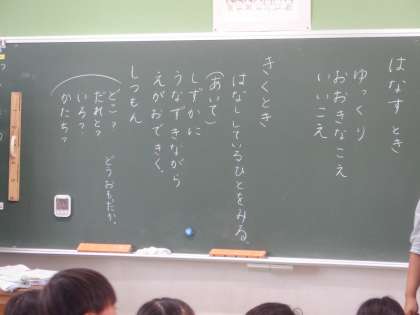 はなすとき
ゆっくり
おおきなこえ
いいこえ
きくとき
はなししているひとをみる。
(あいて)
しずかに
うなずきながら
えがおできく。
しつもん
どこ?
だれと?
いろ?
かたち?
どうおもったか。